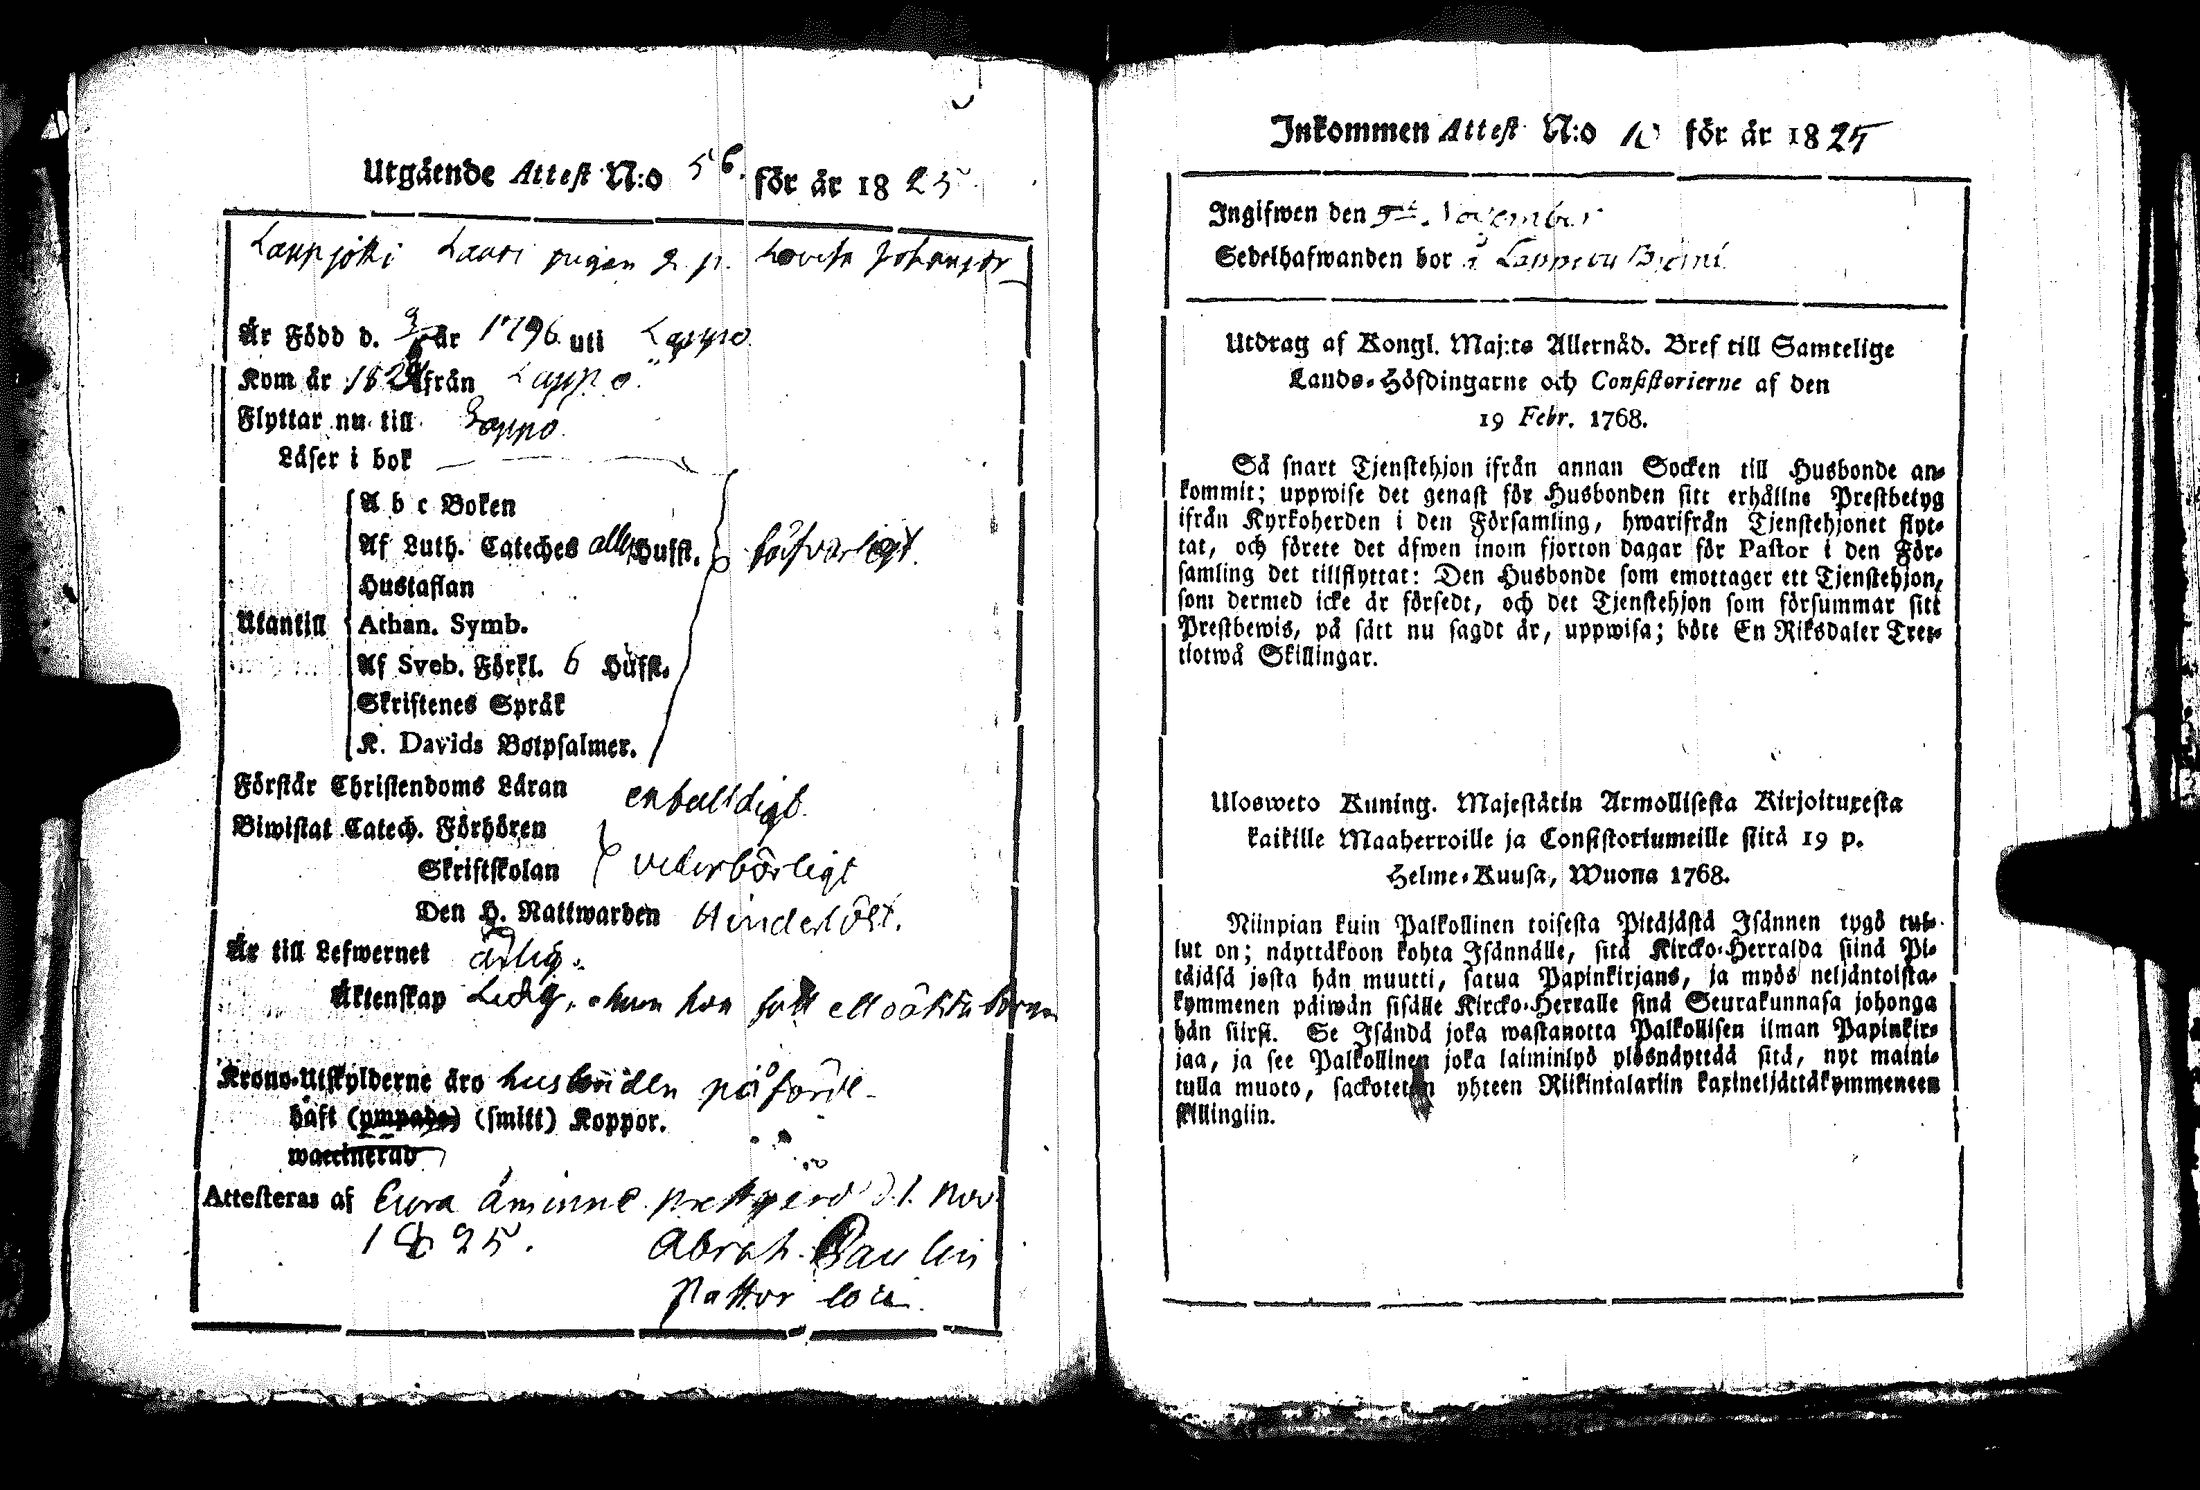 Utgående Attest N:o 56. för år 1825.
Lappjoki Lauri pigan q. p. Lovisa Johansdr
Är Född d. år 1796 uti Lappo
Kom år 182 från Lappo.
Flyttar nu till Lappo.
Läser i bok
A b c Boken
Af Luth. Cateches alla Hufst. försvarligt.
Hustaflan
Utantill Athan. Symb.
Af Sveb. Förkl. 6 Hufst.
Skriftenes Språk
K. Davids Botpsalmer.
Förstår Christendoms Läran enfaldigt.
Biwistat Catech. Förhören
Skriftskolan vederbörligt
Den H. Nattwarden Hinderlöst.
Är till Lefwernet ärlig.
Äktenskap Ledig, ehuru hon haft ett oäkta barn
Krono-Utskylderne äro husbonden påförde
haft (ympade) (smitt) Koppor.
waccinerad
Attesteras af Eura åminne prestgård d. 1. Nov
1825. Abrah. Paulin
Pastor loci.
Inkommen Attest N:o 10 för år 1825
Ingifwen den 9de November
Sedelhafwanden bor å
Utdrag af Kongl. Maj:ts Allernåd. Bref till Samtelige
Lands-Höfdingarne och Consistorierne af den
19 Febr. 1768.
Så snart Tjenstehjon ifrån annan Socken till Husbonde an-
kommit; uppwise det genast för Husbonden sitt erhållne Prestbetyg
ifrån Kyrkoherden i den Församling, hwarifrån Tjenstehjonet flyt-
tat, och förete det äfwen inom fjorton dagar för Pastor i den För-
samling det tillflyttat: Den Husbonde som emottager ett Tjenstehjon,
som dermed icke är försedt, och det Tjenstehjon som försummar sitt
Prestbewis, på sätt nu sagdt är, uppwisa; böte En Riksdaler Tret-
tiotwå Skillingar.
Ulosweto Kuning. Majestätin Armollisesta Kirjoituxesta
kaikille Maaherroille ja Consistoriumeille siitä 19 p.
Helme-Kuusa, Wuona 1768.
Niinpian kuin Palkollinen toisesta Pitäjästä Isännen tygö tul-
lut on; näyttäkoon kohta Isännälle, sitä Kircko-Herralda siinä Pi-
täjäsä josta hän muutti, saatua Papinkirjans, ja myös neljäntoista-
kymmenen päiwän sisälle Kircko-Herralle siinä Seurakunnasa johonga
hän siirsi. Se Isändä joka wastanotta Palkollisen ilman Papinkir-
jaa, ja see Palkollinen joka laiminlyö ylösnäyttää sitä, nyt maini-
tulla muoto, sackotetan yhteen Riikintalariin kaxineljättäkymmeneen
killingiin.